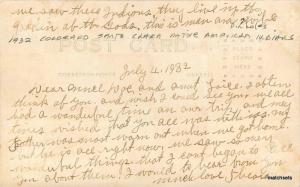 we saw these Indians, they live in the
garden of the Gods, this is man and wife
1932 COLORADO SANTA CLARA NATIVE AMERICAN INDIANS
POST CARD
July 4, 1932
Dear and aunt often
think of you, and wish I could see you. we all
had a wonderful time on our trip, and many
times wished that you all was with us. my
Father was most worn out when we got home.
but he is all right now. we saw so many
wonderful things that I can't began to tell
you about them. I would to hear from you
much love
matchsets